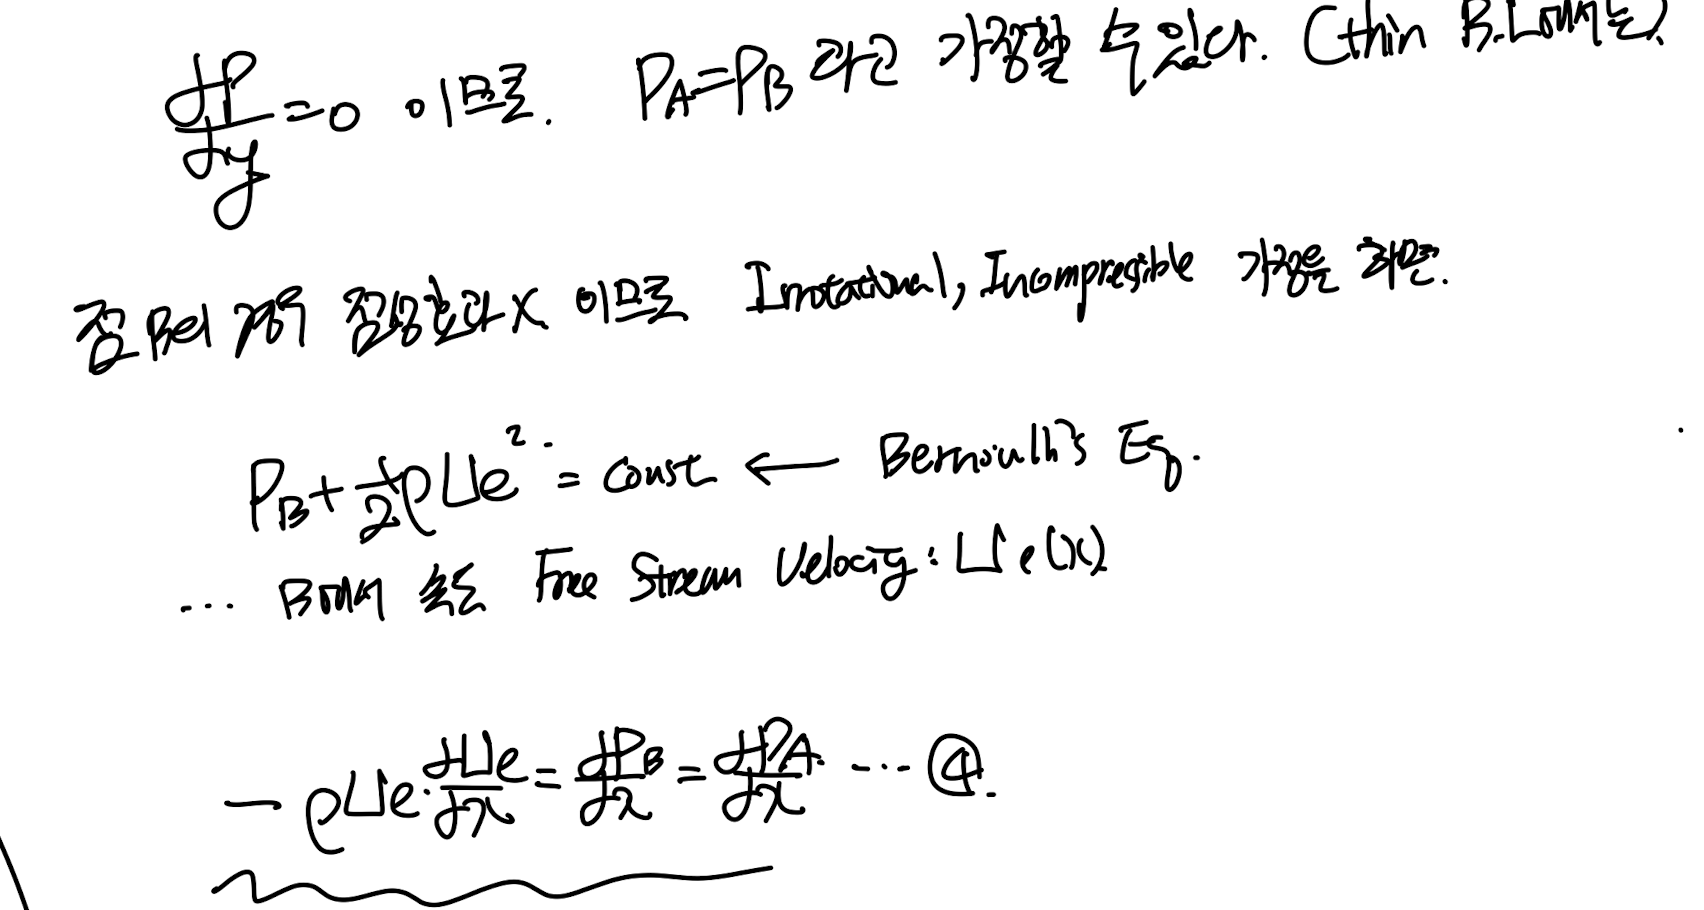 dP/dy = 0 이므로. P_A = P_B 라고 가정할 수 있다. (thin B.L에서는)
점 B의 경우 점성효과 X 이므로 Irrotational, Incompresible 가정을 하면.
P_B + 1/2 ρUe² = const ← Bernoulli's Eq.
... B에서 속도 Free Stream Velocity : Ue(x)
- ρUe · dUe/dx = dP_B/dx = dP_A/dx ... ④.